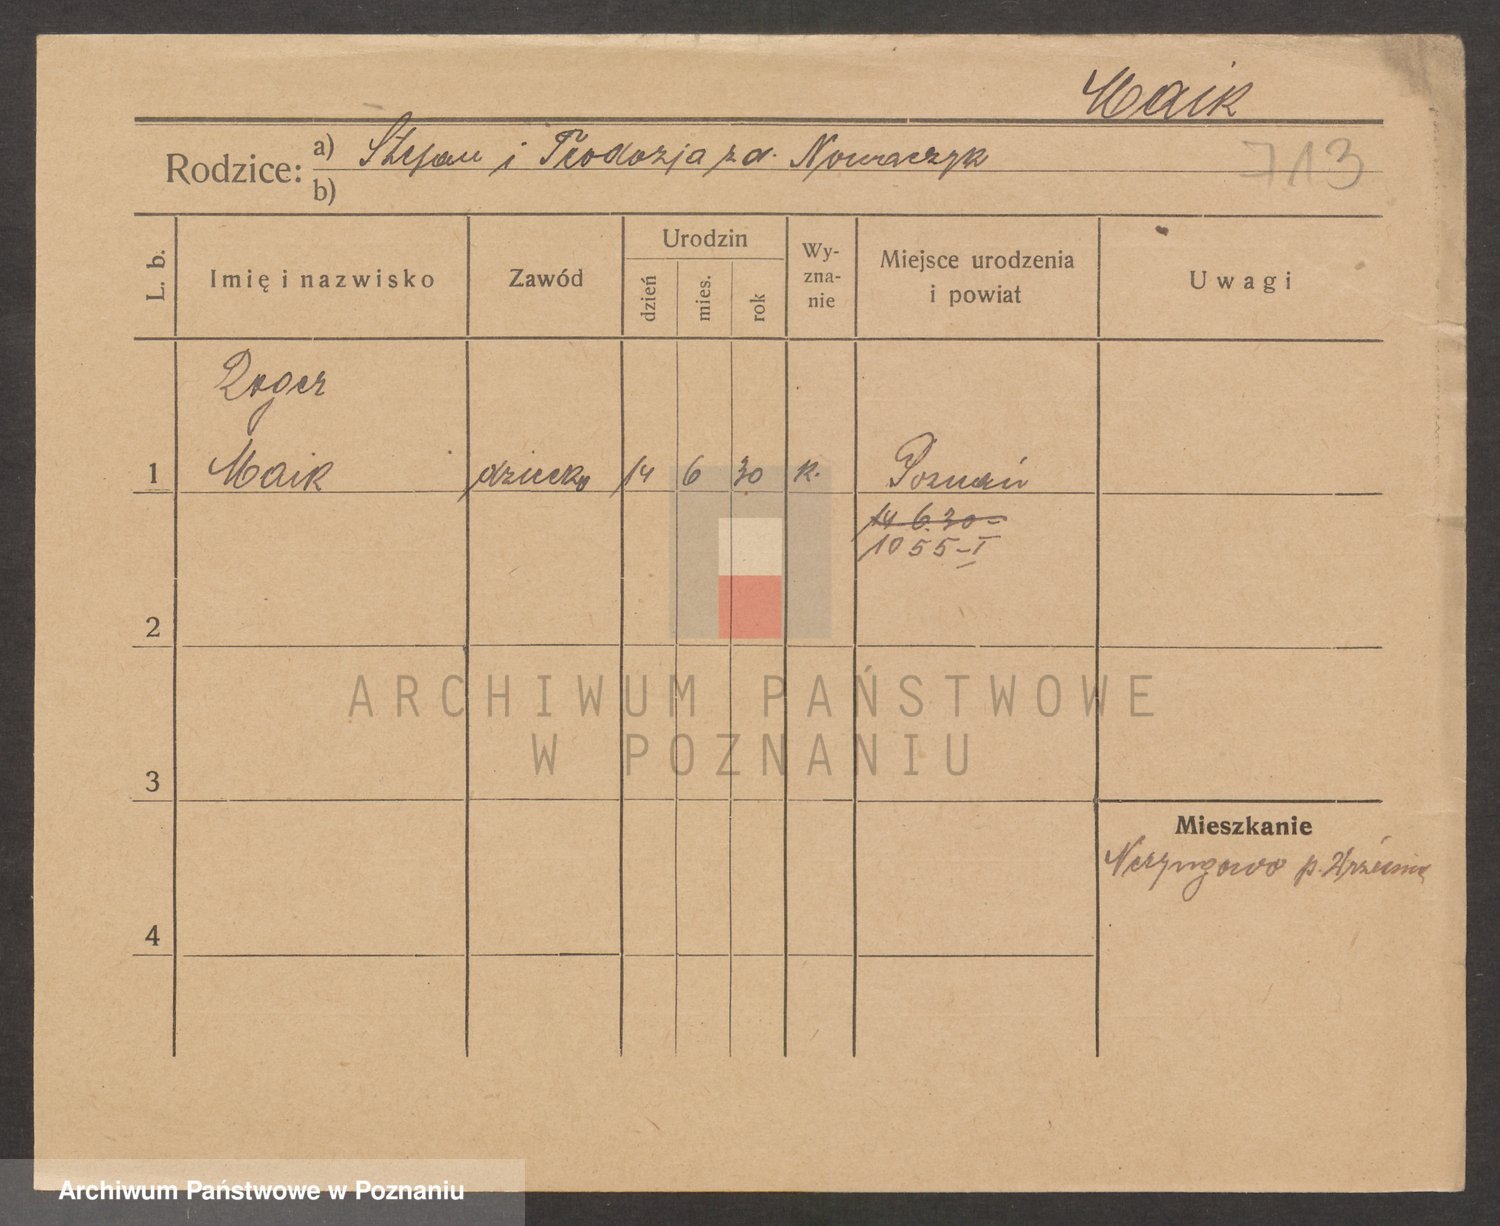 Maik
Rodzice: a) Stefan i Teodozja zd. Nowaczyk
b)
713
L. b.
Imię i nazwisko
Zawód
Urodzin
dzień
mies.
rok
Wy-
zna-
nie
Miejsce urodzenia
i powiat
Uwagi
Roger
1 Maik dziecko 14 6 30 k. Poznań
14 6.30-
1055-I
2
3
4
Mieszkanie
p. Września
ARCHIWUM PAŃSTWOWE
W POZNANIU
Archiwum Państwowe w Poznaniu